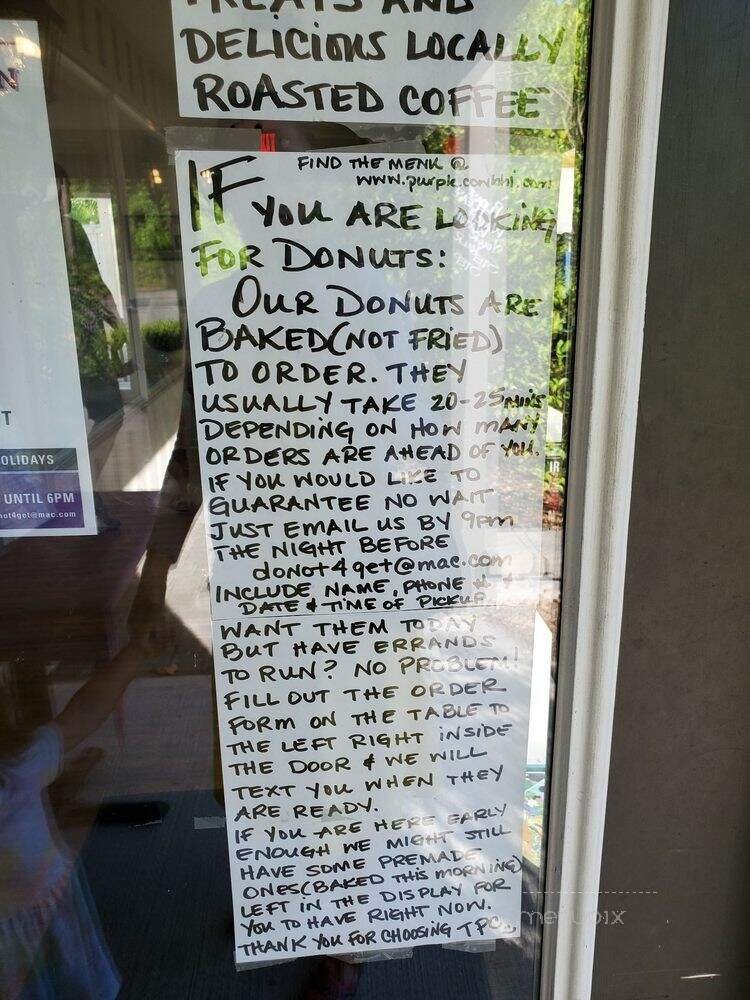 TREATS AND
DELICIOUS LOCALLY
ROASTED COFFEE
N
FIND THE MENU @
www.purplecowhhi.com
IF YOU ARE LOOKING
FOR DONUTS:
OUR DONUTS ARE
BAKED (NOT FRIED)
TO ORDER. THEY
USUALLY TAKE 20-25 MINS
DEPENDING ON HOW MANY
ORDERS ARE AHEAD OF YOU.
IF YOU WOULD LIKE TO
GUARANTEE NO WAIT
JUST EMAIL US BY 9PM
THE NIGHT BEFORE
donot4get@mac.com
INCLUDE NAME, PHONE # +
DATE & TIME OF PICKUP.
WANT THEM TODAY
BUT HAVE ERRANDS
TO RUN? NO PROBLEM!
FILL OUT THE ORDER
FORM ON THE TABLE TO
THE LEFT RIGHT INSIDE
THE DOOR & WE WILL
TEXT YOU WHEN THEY
ARE READY.
IF YOU ARE HERE EARLY
ENOUGH WE MIGHT STILL
HAVE SOME PREMADE
ONES (BAKED THIS MORNING)
LEFT IN THE DISPLAY FOR
YOU TO HAVE RIGHT NOW.
THANK YOU FOR CHOOSING TPC
T
OLIDAYS
UNTIL 6PM
not4get@mac.com
menupix